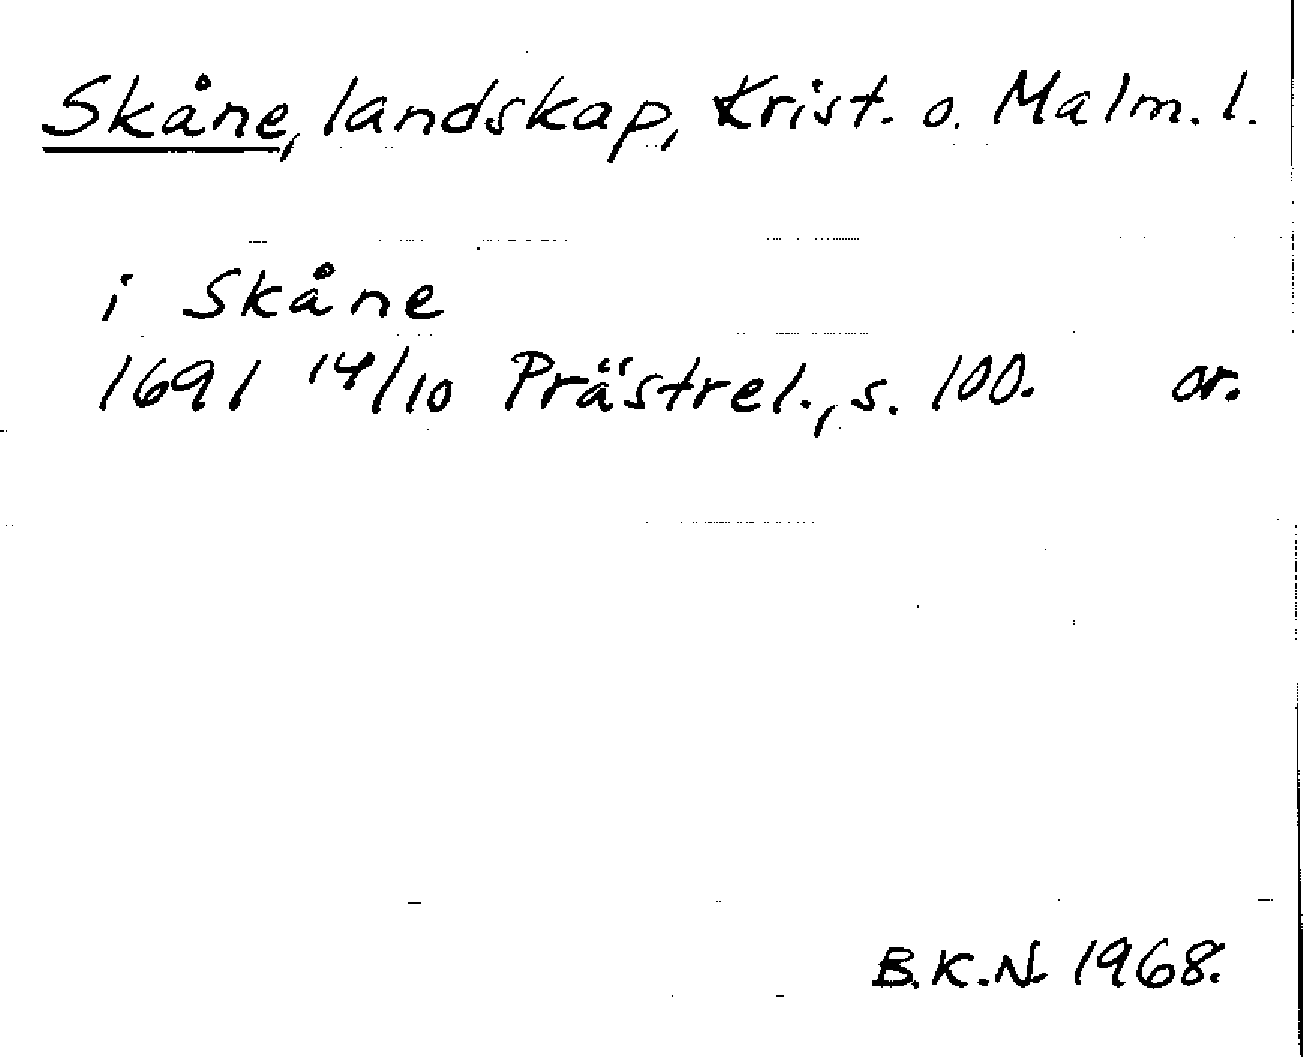 Skåne, landskap, Krist. o. Malm. l.
i Skåne
1691 14/10 Prästrel., s. 100. or.
B.K.N. 1968.